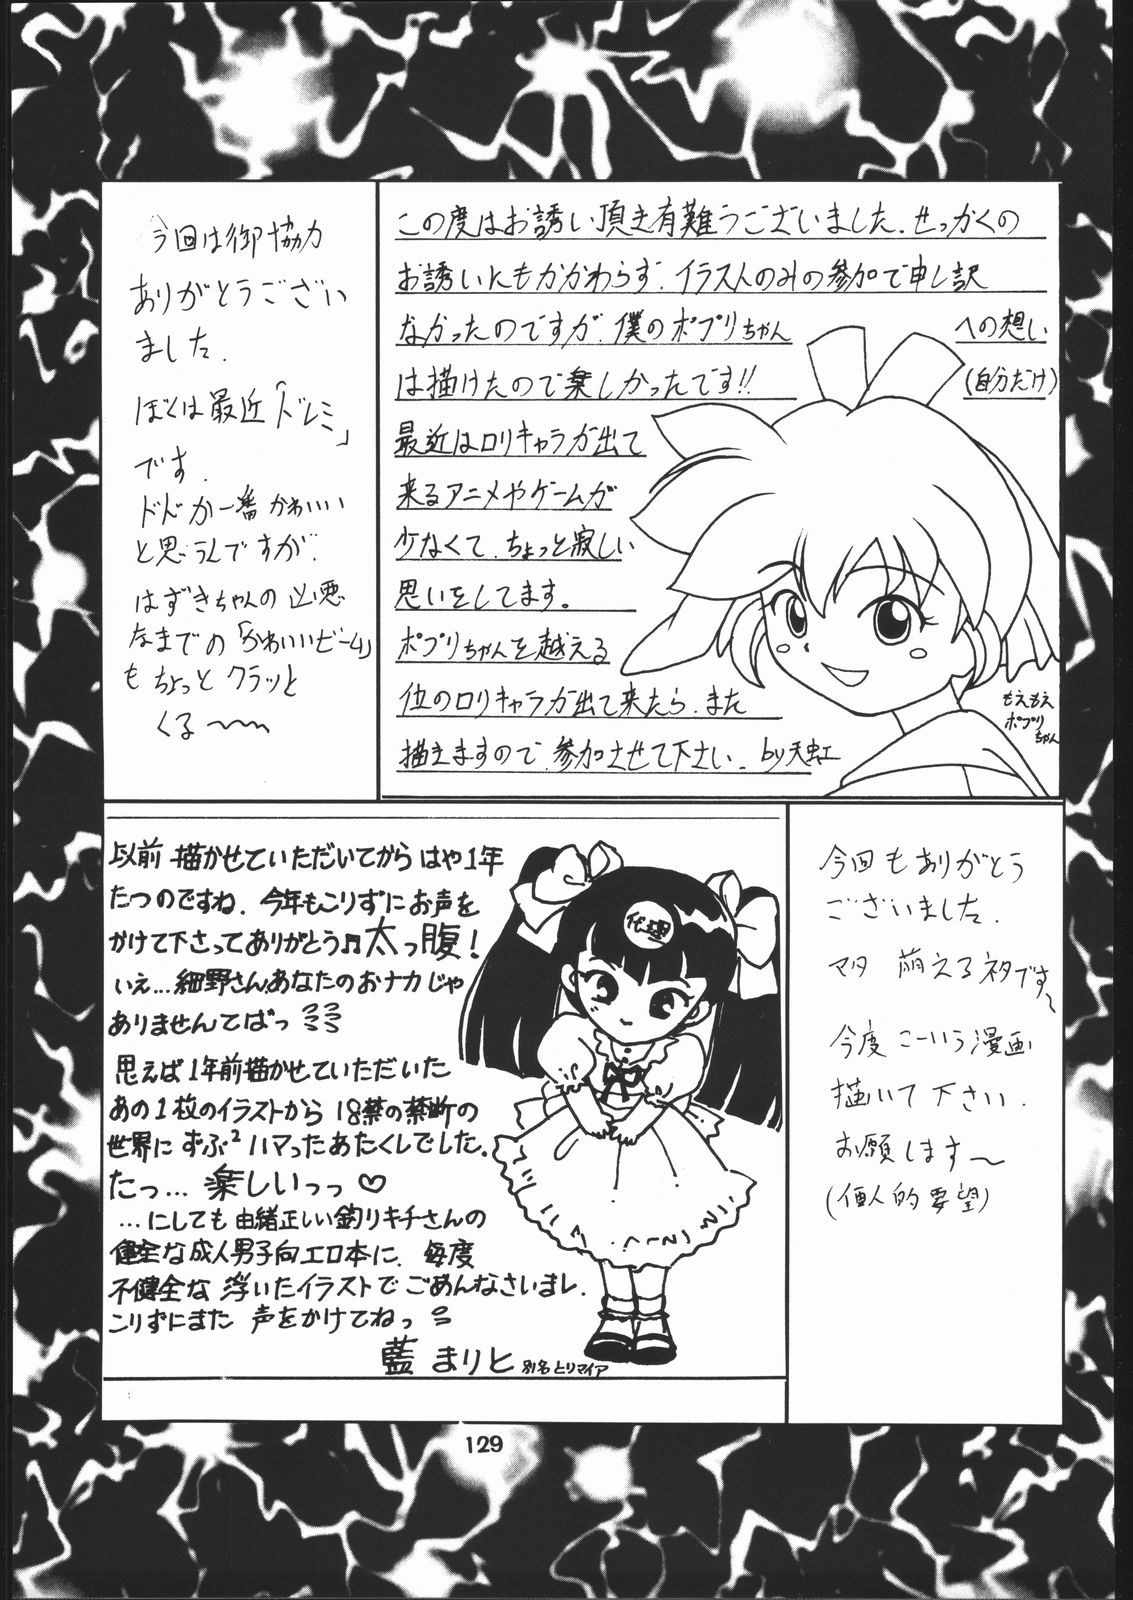 この度はお誘い頂き有難うございました。せっかくの
お誘いにもかかわらず、イラストのみの参加で申し訳
なかったのですが、僕のポプリちゃん
への想い
は描けたので楽しかったです!!
(自分だけ)
最近はロリキャラが出て
来るアニメやゲームが
少なくて、ちょっと寂しい
思いをしてます。
ポプリちゃんを越える
位のロリキャラが出て来たら、また
描きますので、参加させて下さい。by天虹
もえもえ
ポプリ
ちゃん
今回は御協力
ありがとうござい
ました.
ぼくは最近「ドレミ」
です.
ドドが一番かわいい
と思うんですが、
はずきちゃんの凶悪
なまでの「かわいいビーム」
もちょっとクラッと
くる〜
以前描かせていただいてからはや1年
たつのですね。今年もこりずにお声を
かけて下さってありがとう♬太っ腹!
いえ…細野さんあなたのおナカじゃ
ありませんてばっ
思えば1年前描かせていただいた
あの1枚のイラストから18禁の禁断の
世界にずぶ²ハマったあたくしでした。
たっ…楽しいっっ♡
…にしても由緒正しい釣りキチさんの
健全な成人男子向エロ本に、毎度
不健全な浮いたイラストでごめんなさいまし.
こりずにまた声をかけてねっ
藍まりと 別名とりマイア
代理
今回もありがとう
ございました.
マタ 萌えるネタです〜
今度こーいう漫画
描いて下さい.
お願します〜
(個人的要望)
129